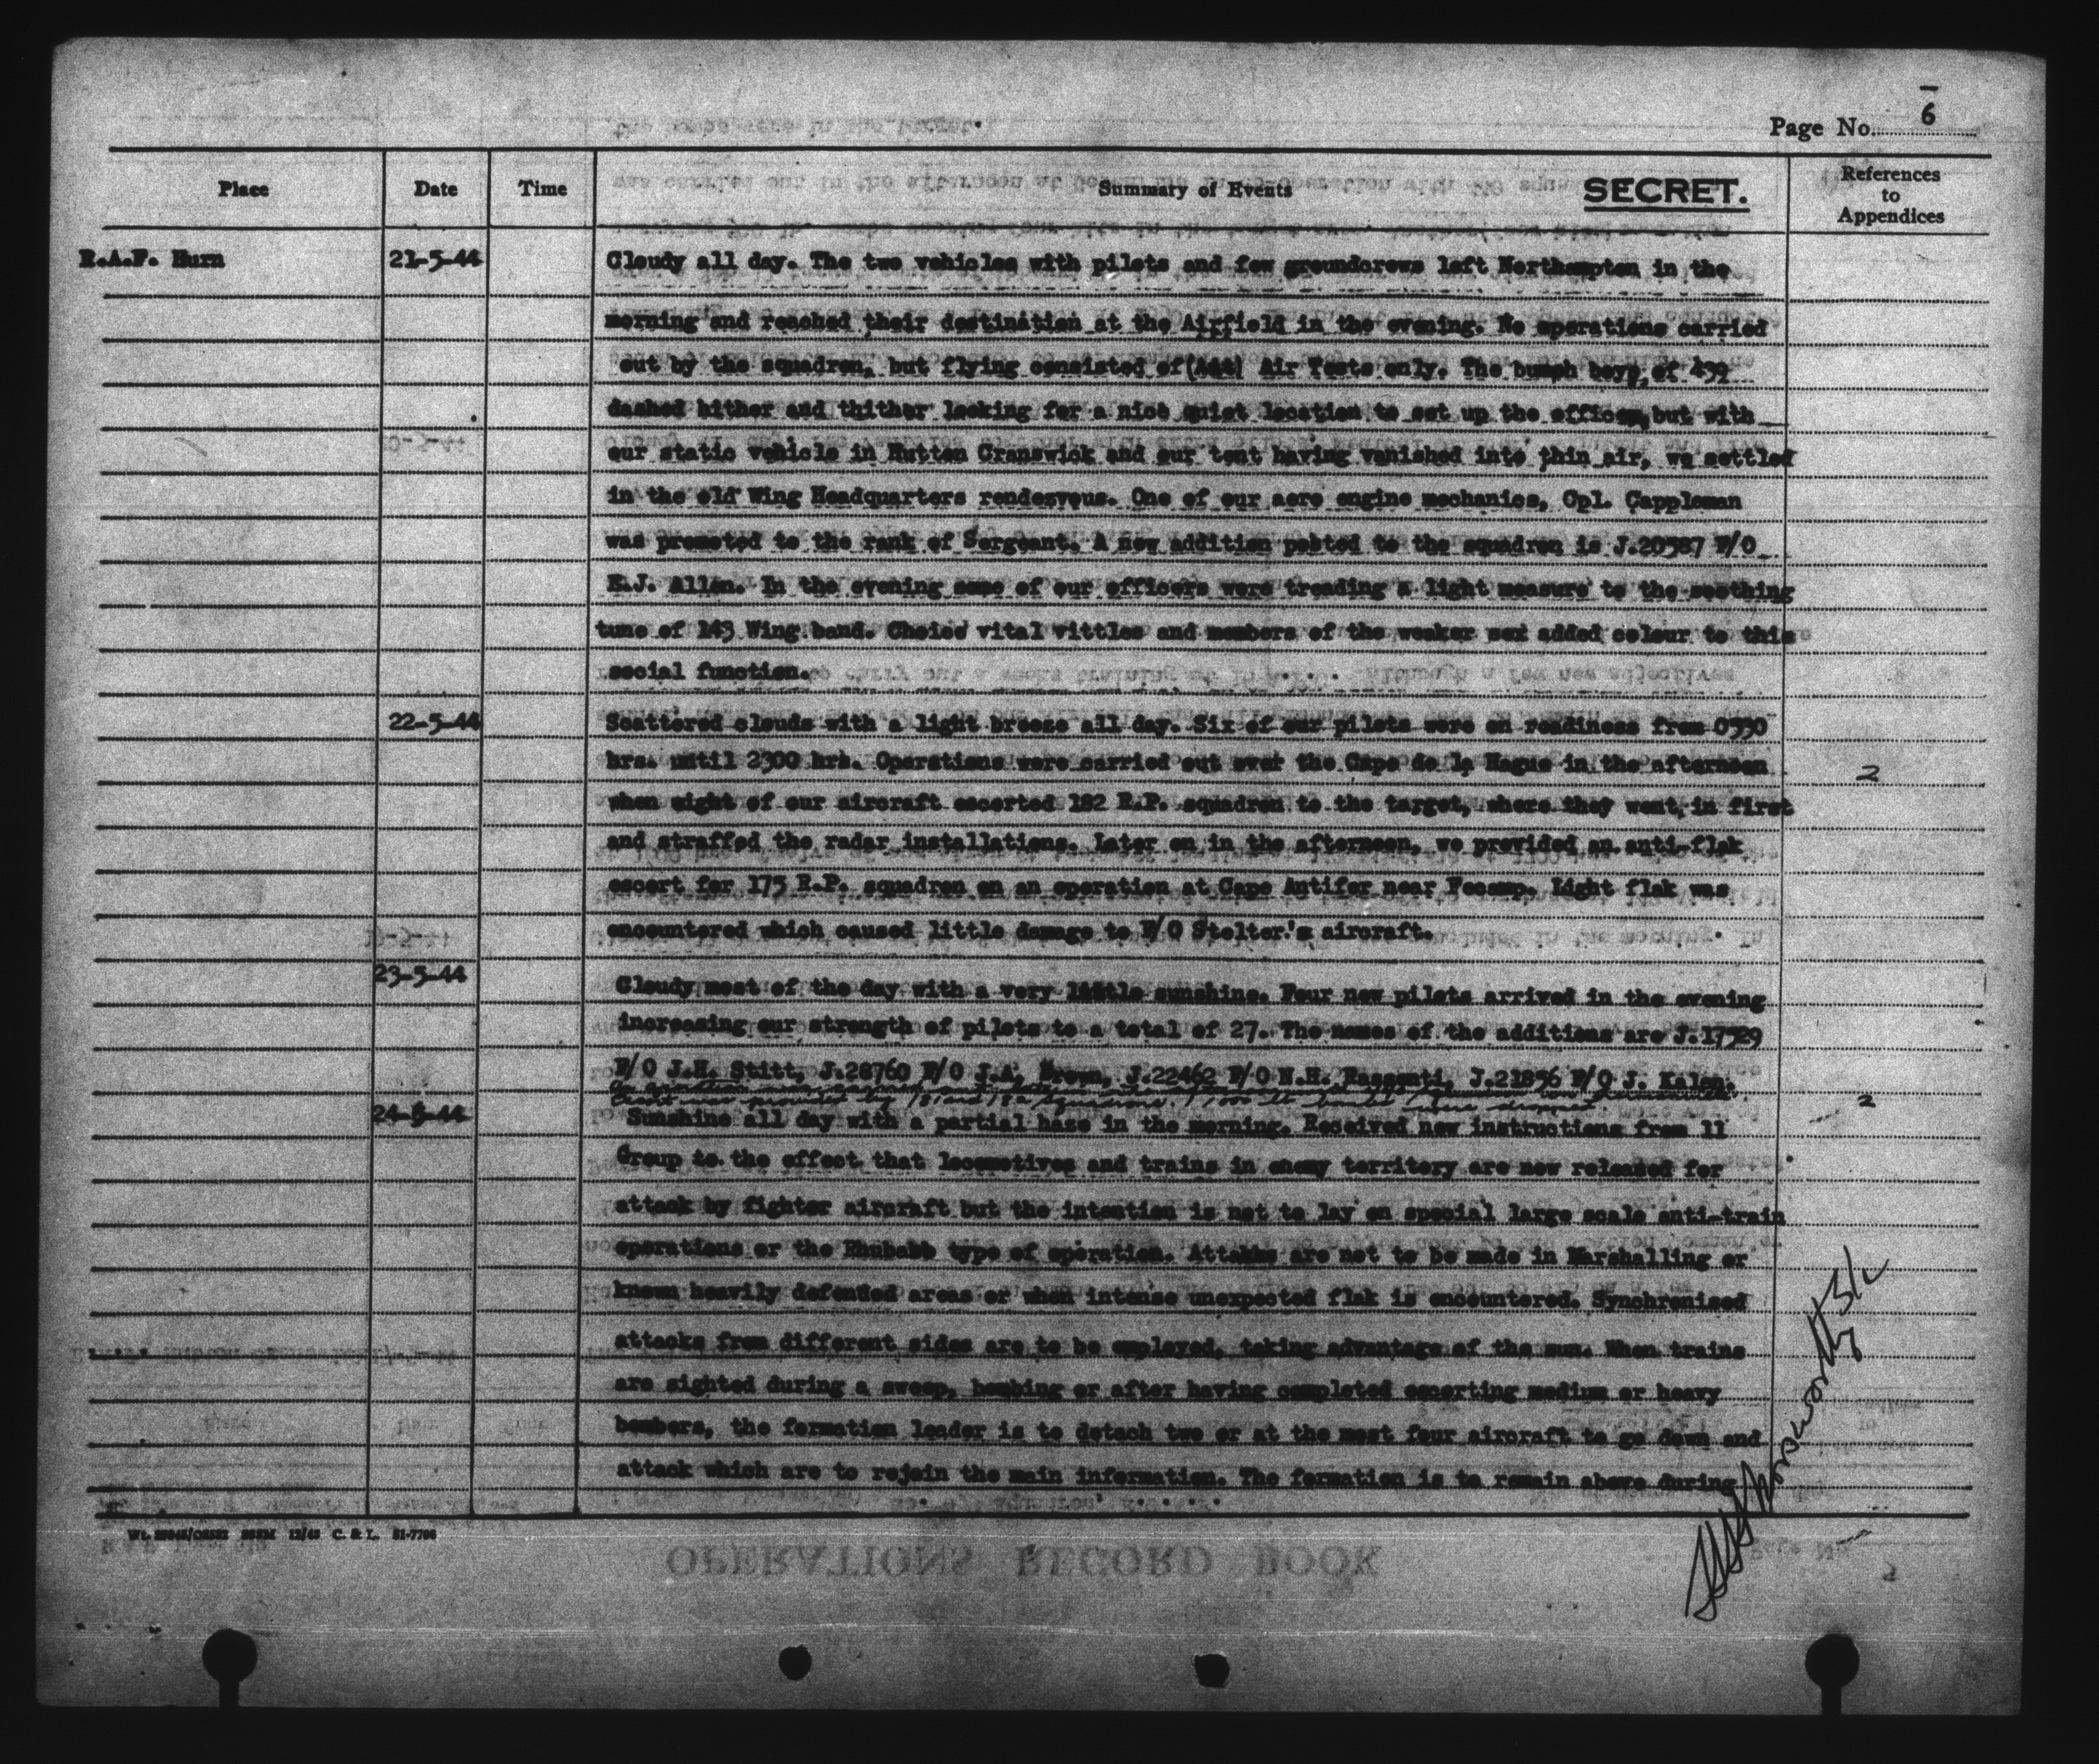 Page No. 6
Place
Date
Time
Summary of Events
SECRET.
References
to
Appendices
R.A.F. Hurn
21-5-44
Cloudy all day. The two vehicles with pilots and few groundcrews left Northampton in the
morning and reached their destination at the Airfield in the evening. No operations carried
out by the squadron, but flying consisted of Air Tests only. The bumph boys, of 439
dashed hither and thither looking for a nice quiet location to set up the offices, but with
our static vehicle in Hutton Cranswick and our tent having vanished into thin air, we settled
in the old Wing Headquarters rendezvous. One of our aero engine mechanics, Cpl. Cappleman
was promoted to the rank of Sergeant. A new addition posted to the squadron is J.20387 F/O
E.J. Allen. In the evening some of our officers were treading a light measure to the soothing
tune of 143 Wing band. Choice vital vittles and members of the weaker sex added colour to this
social function.
22-5-44
Scattered clouds with a light breeze all day. Six of our pilots were on readiness from 0330
hrs. until 2300 hrs. Operations were carried out over the Cape de la Hague in the afternoon
2
when eight of our aircraft escorted 182 R.P. squadron to the target, where they went in first
and straffed the radar installations. Later on in the afternoon, we provided an anti-flak
escort for 175 R.P. squadron on an operation at Cape Antifer near Fecamp. Light flak was
encountered which caused little damage to F/O Stelter's aircraft.
23-5-44
Cloudy most of the day with a very little sunshine. Four new pilots arrived in the evening
increasing our strength of pilots to a total of 27. The names of the additions are J.17529
F/O J.H. Stitt, J.28760 F/O J.A. Brown, J.22462 F/O N.H. J.21836 F/O J. Kalen.
An operation was carried out
Escort was provided by 181 and 182 squadrons. 1,000 lb bombs were dropped.
2
24-5-44
Sunshine all day with a partial haze in the morning. Received new instructions from 11
Group to the effect that locomotives and trains in enemy territory are now released for
attack by fighter aircraft but the intention is not to lay on special large scale anti-train
operations or the Rhubabb type of operation. Attacks are not to be made in Marshalling or
known heavily defended areas or when intense unexpected flak is encountered. Synchronised
attacks from different sides are to be employed, taking advantage of the sun. When trains
are sighted during a sweep, bombing or after having completed escorting medium or heavy
bombers, the formation leader is to detach two or at the most four aircraft to go down and
attack which are to rejoin the main information. The formation is to remain above during
C. & L. 51-7706